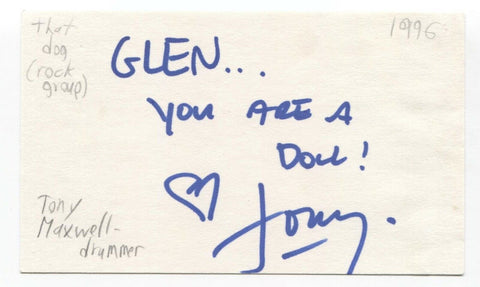 that
dog
(rock
group)
1996
GLEN...
YOU ARE A
DOLL!
♡ Tony.
Tony
Maxwell-
drummer